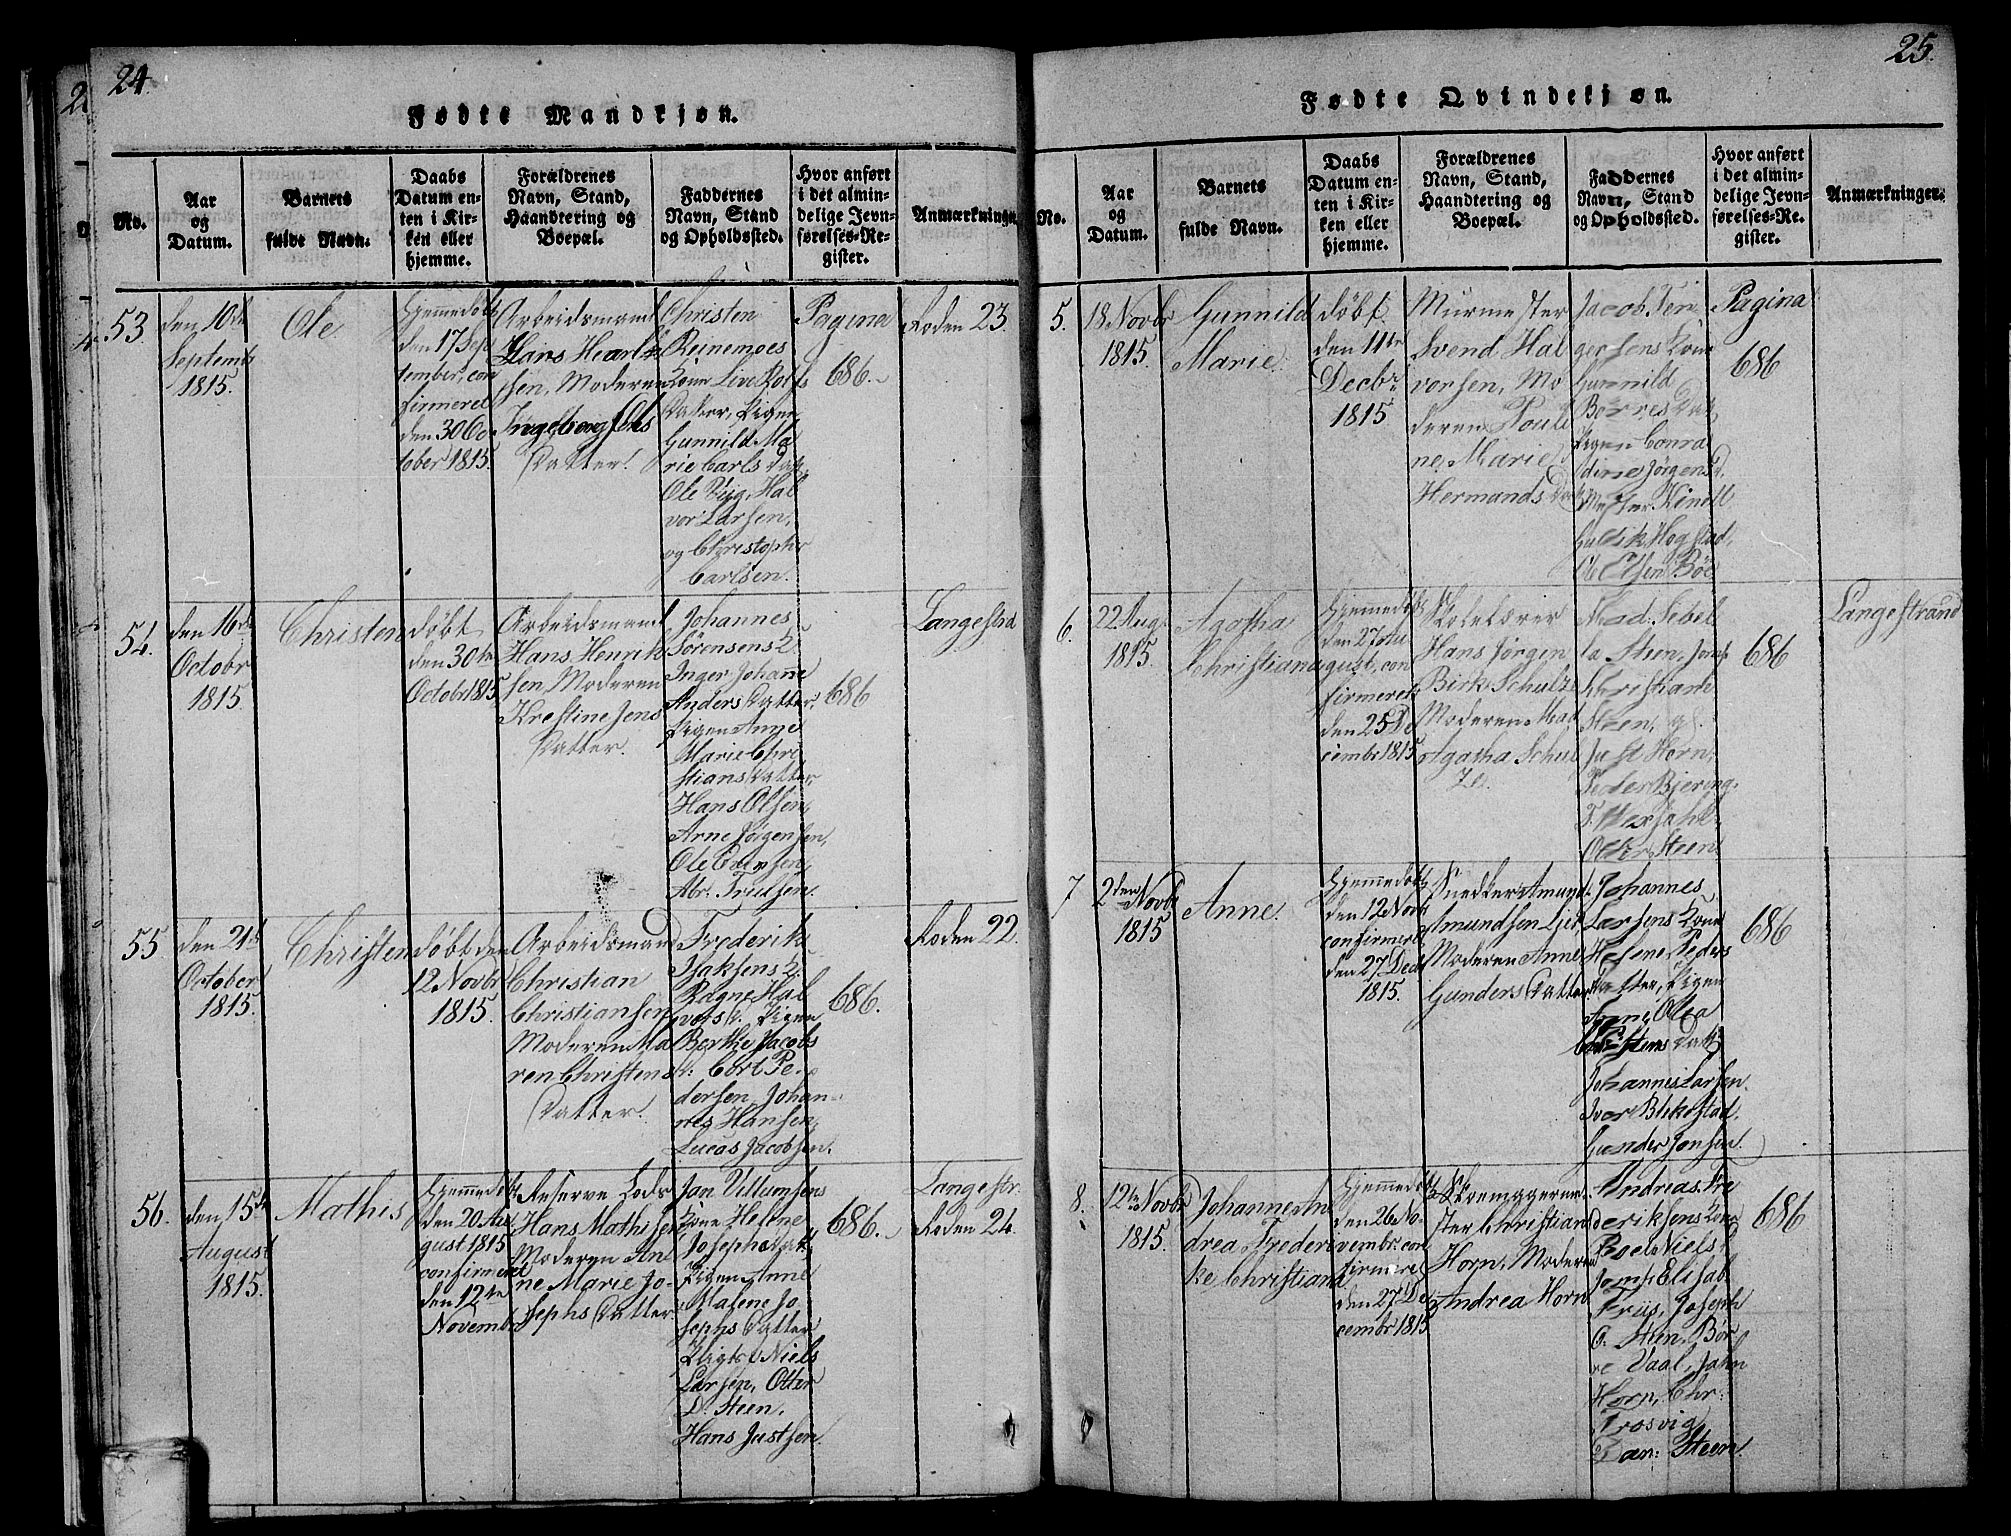 24.
Fødte Mandkjøn.
No.
Aar
og
Datum.
Barnets
fulde Navn.
Daabs
Datum en-
ten i Kir-
ken eller
hjemme.
Forældrenes
Navn, Stand,
Haandtering og
Boepæl.
Faddernes
Navn, Stand
og Opholdssted.
Hvor anført
i det almin-
delige Jevn-
førelses-Re-
gister.
Anmærkninger
53.
den 10de
Septembr
1815.
Ole
Hjemmedøbt
den 17 Sep
tember, con
firmeret
den 30 Oc
tober 1815.
Arbeidsmand
Hans
sen, Moderen
Ingeborg
Datter.
Christen
Reinemoes
Kone Live
Datter, Pigen
Gunnild Ma
rie Carls Dat
Ole Viig, Hal
vor Larsen,
og Christopher
Carlsen.
Pagina
686.
Roden 23.
54.
den 16de
Octobr
1815.
Christen
døbt
den 30te
Octobr 1815
Arbeidsmand
Hans Henrik
sen, Moderen
Kristine Jens
Datter.
Johannes
Sørensens K.
Inger Johanne
Anders Datter,
Pigen Anne
Marie Chri
stians Datter
Hans Olsen,
Arne Jørgensen,
Ole
Abr. Trulsen.
686
Langestrd
55
den 21de
October
1815.
Christen
døbt den
12 Novbr
1815.
Arbeidsmand
Christian
Christiansen
Moderen Ma
ren Christens
Datter.
Frederik
Isaksens K.
Ragne Hal
vors D. Pigen
Berthe Jacobs
D. Cort Pe
dersen, Johan-
nes Hansen,
Lucas Jacobsen.
686.
Roden 22.
56.
den 15de
August
1815.
Mathis
Hjemmedøbt
den 20 Au
gust 1815
confirmeret
den 12te
Novembr
Reserve Lods
Hans Mathisen
Moderen An
ne Marie Jo-
sephs Datter
Jan Villumsens
Kone Helene
Josephs Dat
Pigen Anne
Malene Jo
sephs Datter
Niels
Larsen, Otter
D. Steen,
Hans Justsen.
686.
Langestr.
Roden 24.
25.
Fødte Qvindekjøn.
No.
Aar
og
Datum.
Barnets
fulde Navn.
Daabs
Datum en-
ten i Kir-
ken eller
hjemme.
Forældrenes
Navn, Stand,
Haandtering og
Boepæl.
Faddernes
Navn, Stand
og Opholdssted.
Hvor anført
i det almin-
delige Jevn-
førelses-Re-
gister.
Anmærkninger.
5.
18 Novbr
1815
Gunnild
Marie.
døbt
den 11te
Decbr
1815
Murmester
Svend Hal
vorsen, Mo
deren Pouli
ne Marie
Hermands Dat
Jacob Ten
gersens Kone
Gunnild
Børres Dat
Pigen Conra
dine Jørgens D.
Hogstad,
Ole Olsen Bøe
Pagina
686
6.
22 Aug
1815.
Agatha
Christiana
Hjemmedøbt
den 27 Au
gust, con
firmeret
den 25 De
cembr 1815
Skolelærer
Hans Jørgen
Birk Schulze
Moderen Mad
Agatha Schul
ze.
Mad: Sebel
la Steen, Jomfr
Christiane
Steen, og
Just Horn,
Peder Bjering,
Otter Steen
686
Langestrand
7
2den Novbr
1815
Anne.
Hjemmedøbt
den 12 Novbr
confirmeret
den 27 Decb
1815.
Snedker Amund
Amundsen
Moderen Anne
Gunders Datter
Johannes
Larsens Kone
Helene Peders
Datter, Pigen
Anne Olea
Christens Datt
Johannes Larsen
Iver Blikestad.
Gunder Jonsen.
686
8.
12te Novbr
1815.
Johanne An
drea Frederi
ke Christiana
Hjemmedøbt
den 26 No
vembr. con
firmeret
den 27 De
cembr 1815
Skoemagerme
ster Christian
Horn, Moderen
Andrea Horn
Andreas Fre
deriksens Kone
Boel Niels D.
Jomf: Elisab.
Friis, Joseph
O. Steen, Bør
re Vaal, John
Horn, Chr:
Trosvig
Dan: Steen
686